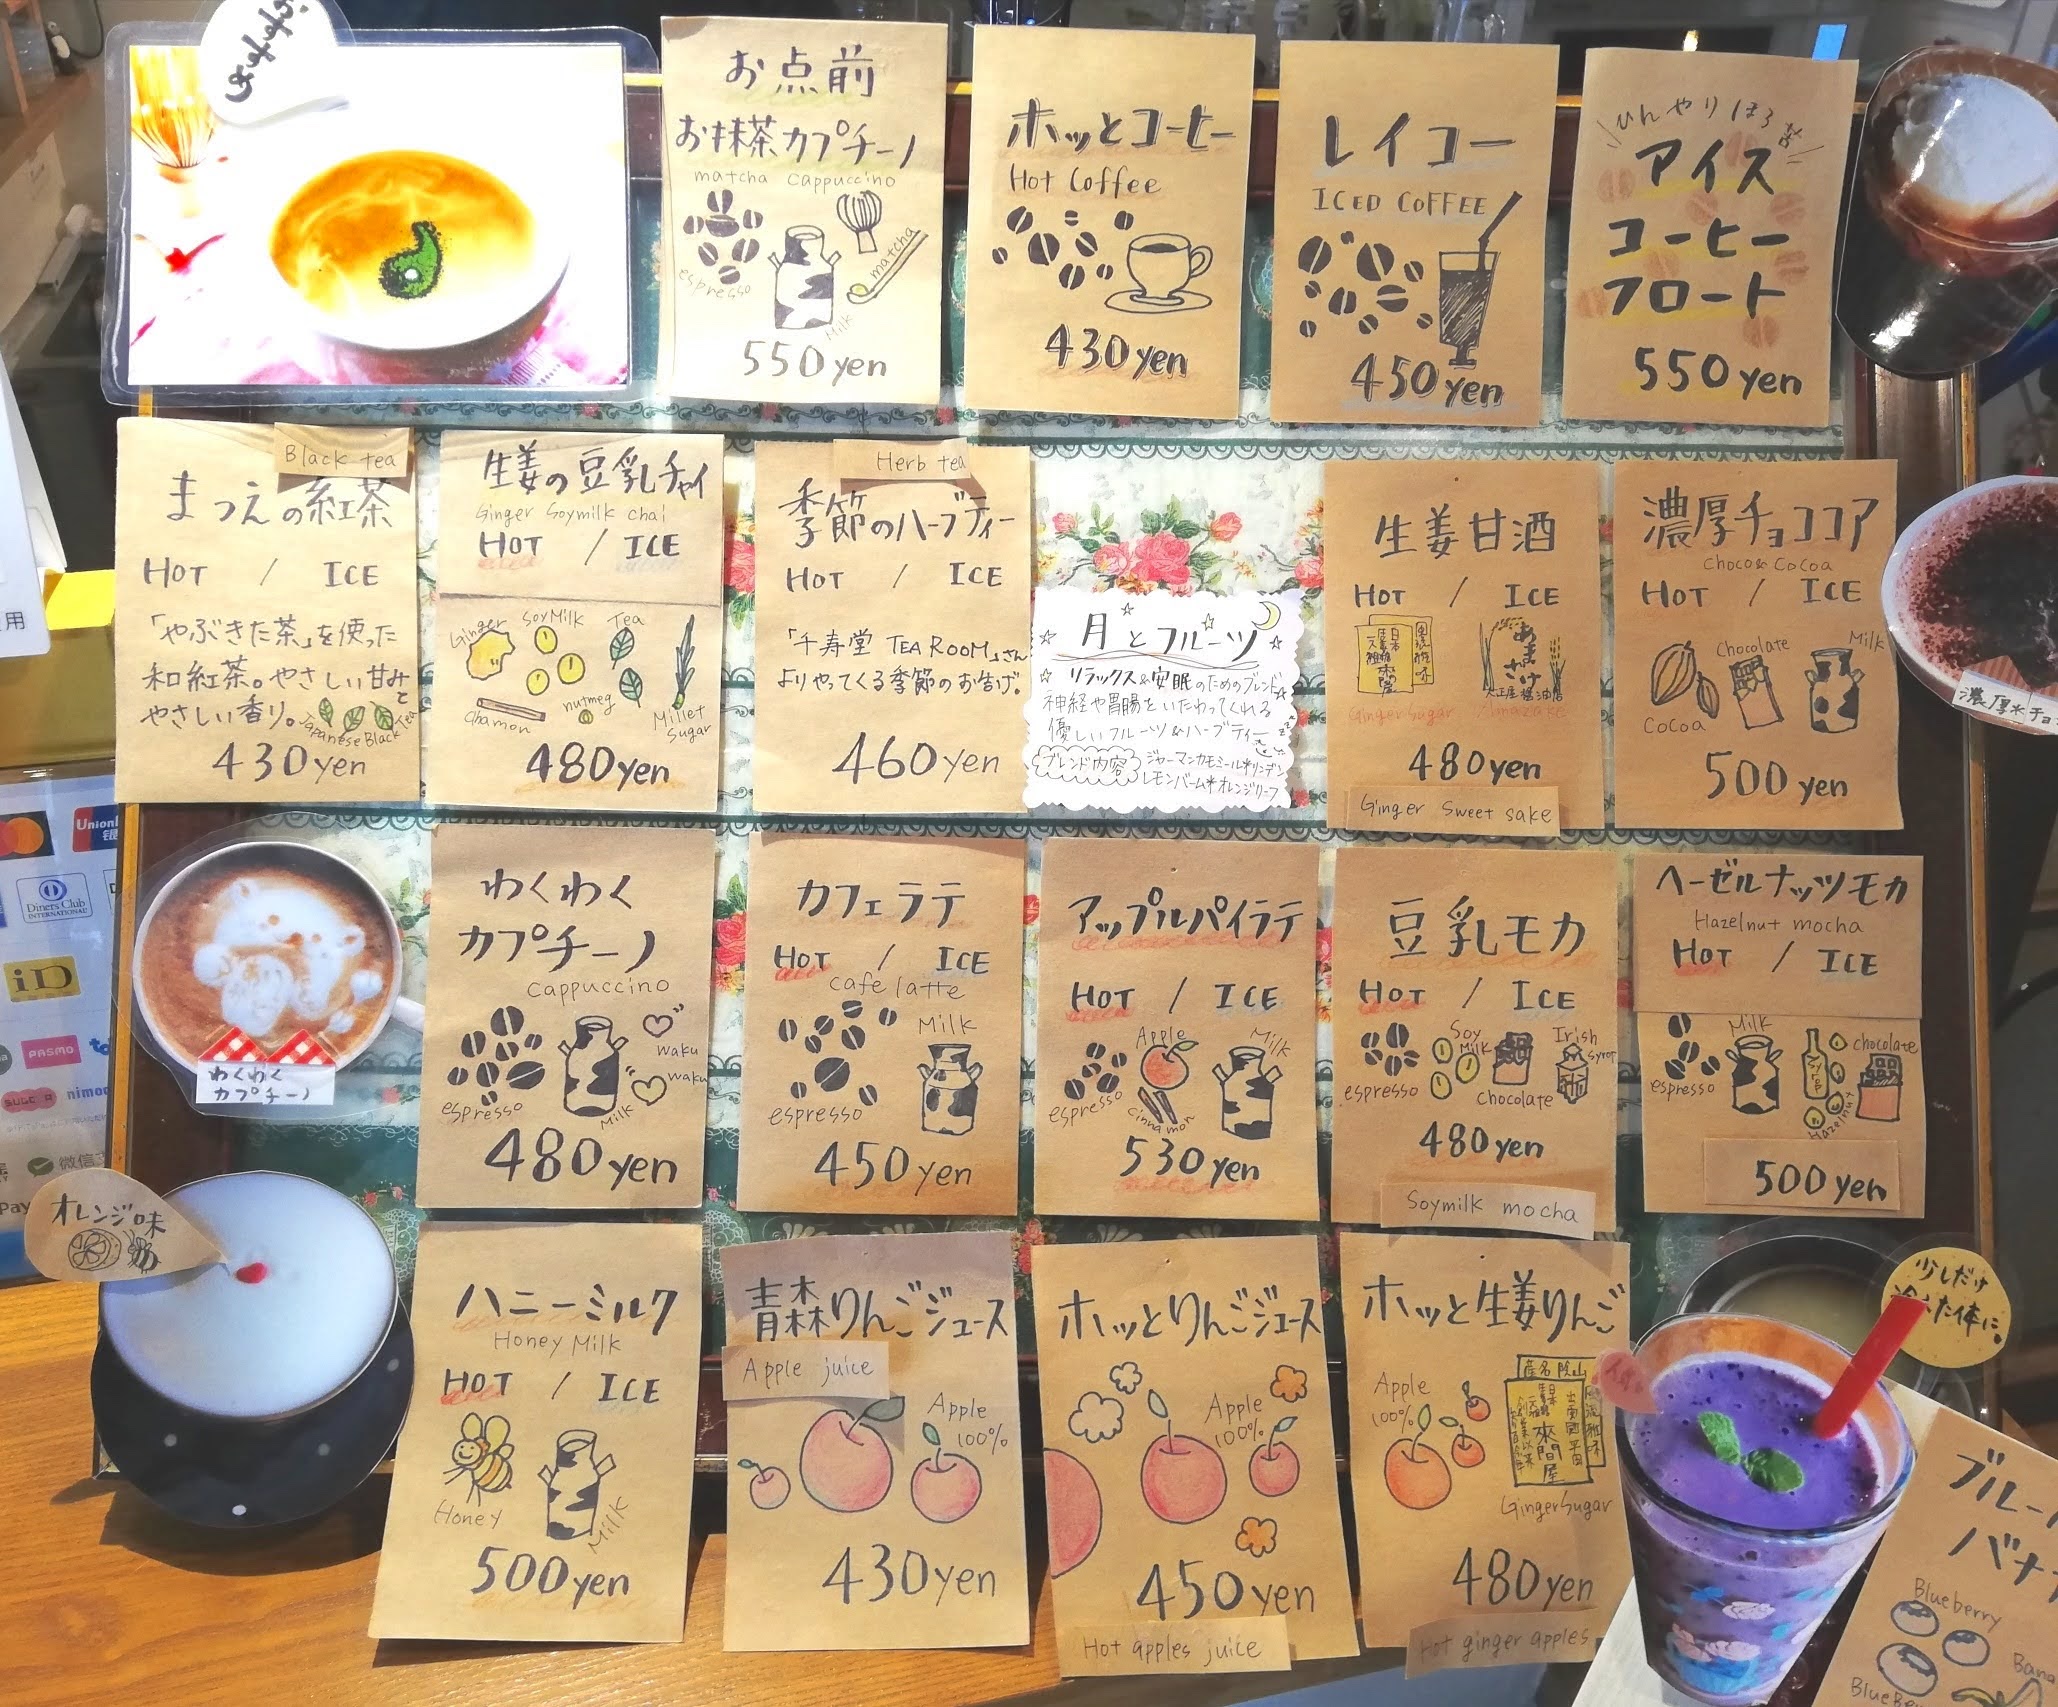 お点前
お抹茶カプチーノ
matcha cappuccino
espresso
Milk
matcha
550yen
ホッとコーヒー
Hot Coffee
430yen
レイコー
ICED COFFEE
450yen
ひんやりほろ苦
アイス
コーヒー
フロート
550yen
Black tea
まつえの紅茶
HOT / ICE
「やぶきた茶」を使った
和紅茶。やさしい甘みと
やさしい香り。
Japanese Black Tea
430yen
生姜の豆乳チャイ
Ginger Soymilk chai
HOT / ICE
Ginger
SoyMilk
Tea
Chamon
nutmeg
Millet Sugar
480yen
Herb tea
季節のハーブティー
HOT / ICE
「千寿堂 TEA ROOM」さん
よりやってくる季節のお告げ。
460yen
月とフルーツ
リラックス&安眠のためのブレンド
神経や胃腸をいたわってくれる
優しいフルーツ&ハーブティー
ブレンド内容
ジャーマンカモミール*リンデン
レモンバーム*オレンジリーフ
生姜甘酒
HOT / ICE
あまさけ
Ginger Sugar
Amazake
480yen
Ginger Sweet sake
濃厚チョココア
Choco&Cocoa
HOT / ICE
Chocolate
Milk
Cocoa
500yen
濃厚チョ
わくわく
カプチーノ
わくわく
カプチーノ
cappuccino
waku
waku
espresso
Milk
480yen
カフェラテ
HOT / ICE
cafe latte
Milk
espresso
450yen
アップルパイラテ
HOT / ICE
Apple
Milk
espresso
cinnamon
530yen
豆乳モカ
HOT / ICE
Soy Milk
Irish Syrop
espresso
Chocolate
480yen
Soymilk mocha
ヘーゼルナッツモカ
Hazelnut mocha
HOT / ICE
Milk
chocolate
espresso
Hazelnut
500yen
オレンジ味
ハニーミルク
Honey Milk
HOT / ICE
Honey
Milk
500yen
青森りんごジュース
Apple juice
Apple
100%
430yen
ホッとりんごジュース
Apple
100%
450yen
Hot apples juice
ホッと生姜りんご
Apple
100%
來間屋
GingerSugar
480yen
Hot ginger apples
少しだけ
冷えた体に。
ブルー
バナナ
Blueberry
Bana
BlueBer
用
Union
Diners Club
INTERNATIONAL
iD
PASMO
nimoc
微信
Pay